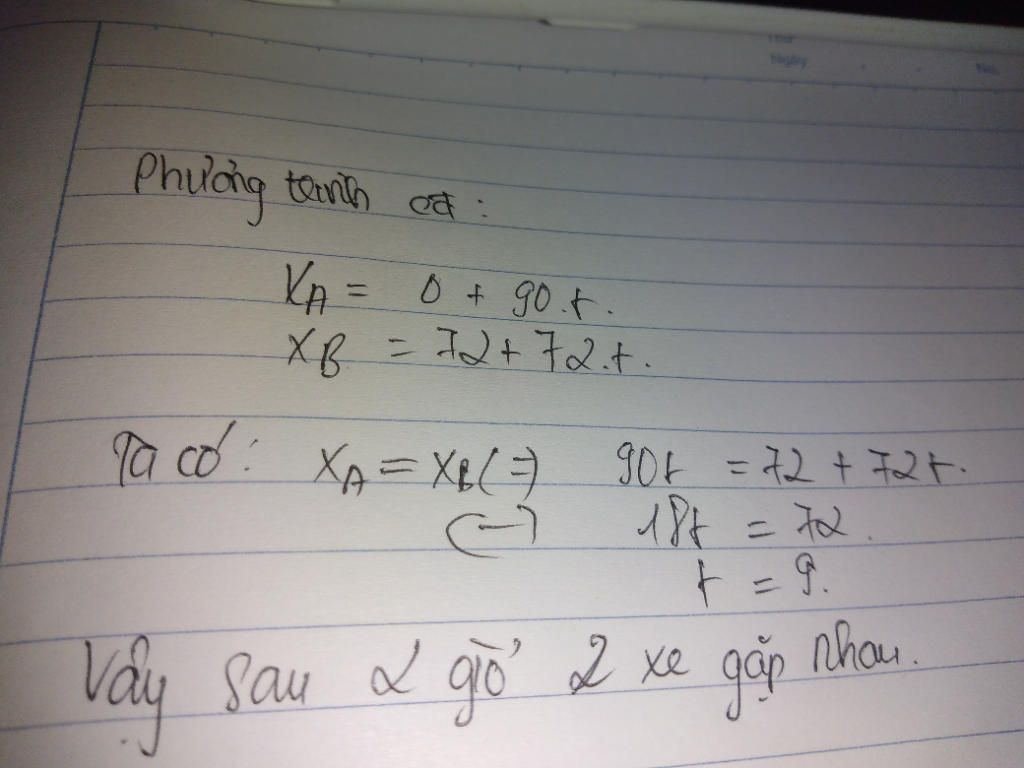 Thứ
Ngày
No.
Phương trình cđ :
XA = 0 + 90.t.
XB = 72 + 72.t.
Ta có : XA = XB (=) 90t = 72 + 72t.
(=) 18t = 72.
t = 9.
Vậy sau 2 giờ 2 xe gặp nhau.